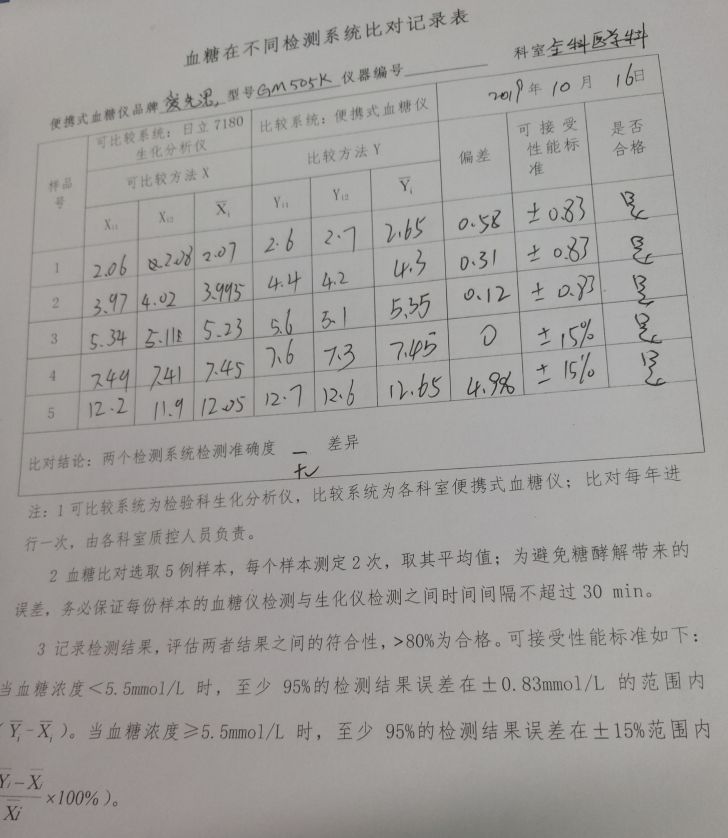 血糖在不同检测系统比对记录表
科室全科医学科
便携式血糖仪品牌爱先思,型号GM505K 仪器编号
2019年 10 月 16日
样品号 可比较系统：日立 7180 生化分析仪 比较系统：便携式血糖仪 偏差 可接受性能标准 是否合格
可比较方法 X 比较方法 Y
Xi1 Xi2 X̅i Yi1 Yi2 Y̅i
1 2.06 2.08 2.07 2.6 2.7 2.65 0.58 ±0.83 是
2 3.97 4.02 3.995 4.4 4.2 4.3 0.31 ±0.83 是
3 5.34 5.11 5.23 5.6 5.1 5.35 0.12 ±0.83 是
4 7.49 7.41 7.45 7.6 7.3 7.45 0 ±15% 是
5 12.2 11.9 12.05 12.7 12.6 12.65 4.9% ±15% 是
比对结论：两个检测系统检测准确度 无 差异
注：1 可比较系统为检验科生化分析仪，比较系统为各科室便携式血糖仪；比对每年进
行一次，由各科室质控人员负责。
2 血糖比对选取 5 例样本，每个样本测定 2 次，取其平均值；为避免糖酵解带来的
误差，务必保证每份样本的血糖仪检测与生化仪检测之间时间间隔不超过 30 min。
3 记录检测结果，评估两者结果之间的符合性，>80%为合格。可接受性能标准如下：
当血糖浓度＜5.5mmol/L 时，至少 95%的检测结果误差在±0.83mmol/L 的范围内
（Y̅i-X̅i）。当血糖浓度≥5.5mmol/L 时，至少 95%的检测结果误差在±15%范围内
Y̅i-X̅i
X̅i ×100%）。